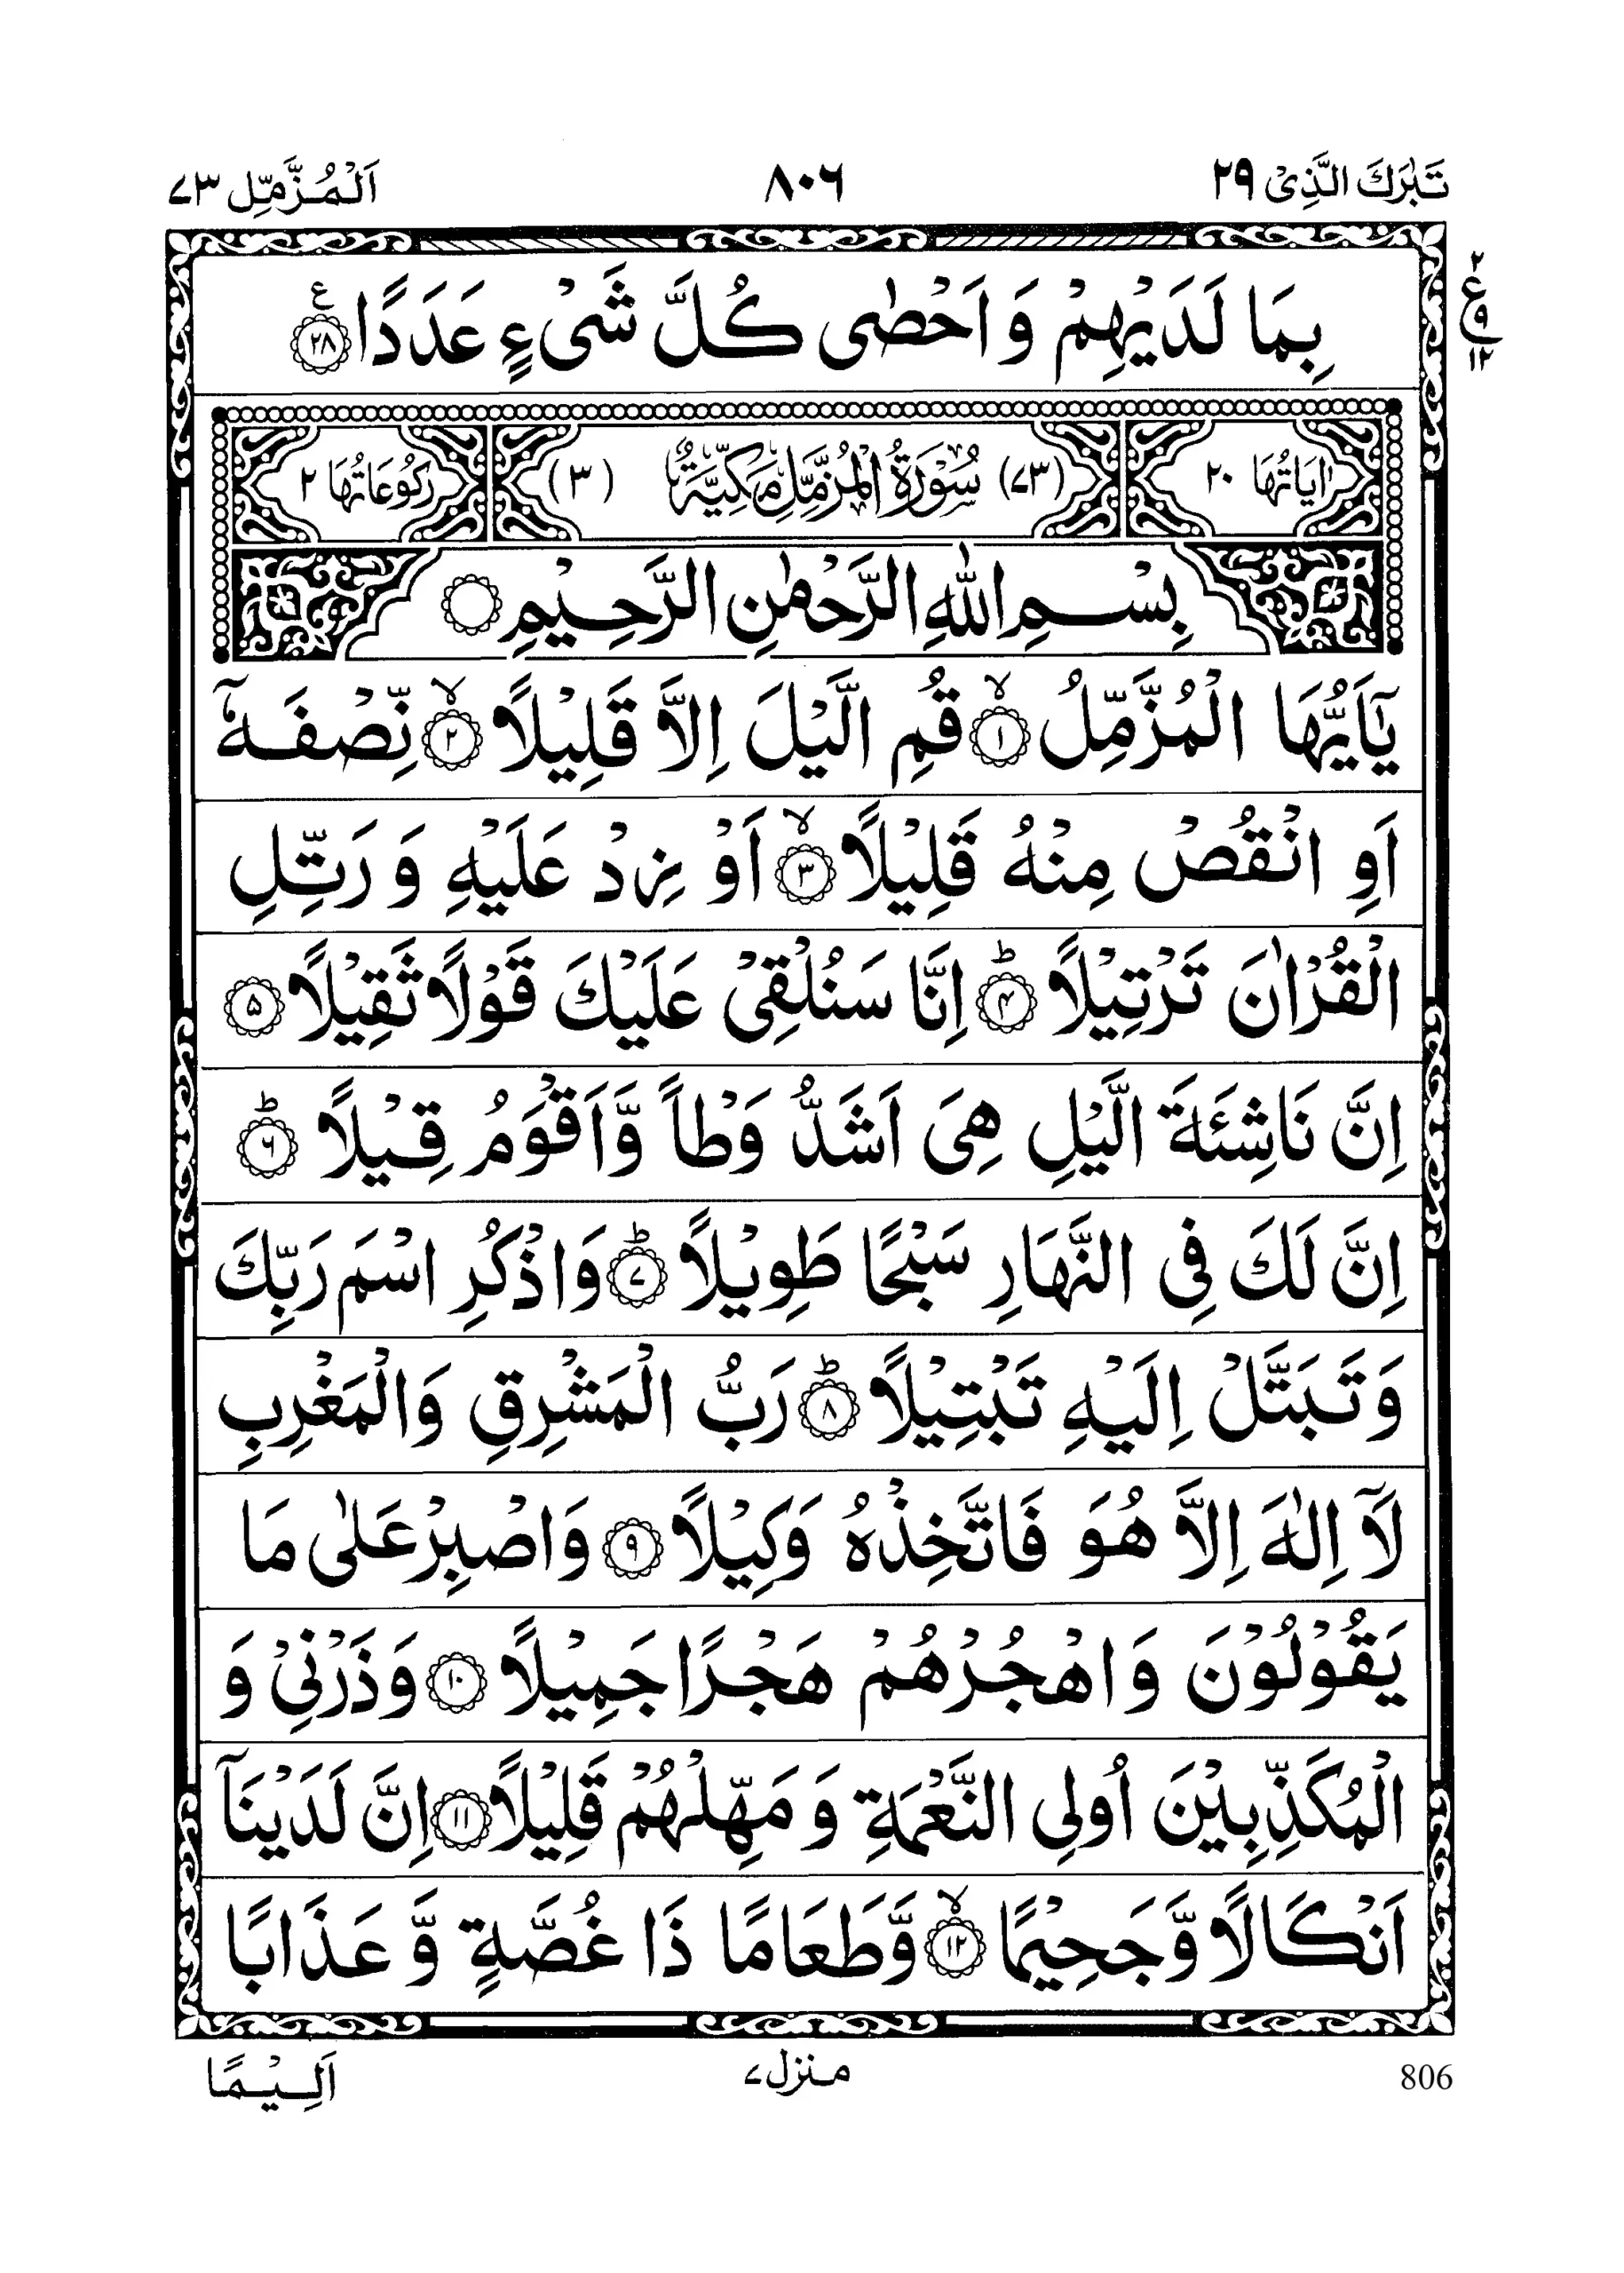 تَبٰرَكَ الَّذِىْ ٢٩ ٨٠٦ اَلْمُزَّمِّل ٧٣
٢ ع ٩ ١٢
بِمَا لَدَيْهِمْ وَ اَحْصٰى كُلَّ شَىْءٍ عَدَدًا ﴿٢٨﴾ ع
اٰيَاتُهَا ٢٠ (٧٣) سُوْرَةُ الْمُزَّمِّلِ مَكِّيَّةٌ (٣) رُكُوْعَاتُهَا ٢
بِسْمِ اللّٰهِ الرَّحْمٰنِ الرَّحِيْمِ
يٰۤاَيُّهَا الْمُزَّمِّلُ ﴿١﴾ۙ قُمِ الَّيْلَ اِلَّا قَلِيْلًا ﴿٢﴾ۙ نِّصْفَهٗۤ
اَوِ انْقُصْ مِنْهُ قَلِيْلًا ﴿٣﴾ۙ اَوْ زِدْ عَلَيْهِ وَ رَتِّلِ
الْقُرْاٰنَ تَرْتِيْلًا ﴿٤﴾ؕ اِنَّا سَنُلْقِىْ عَلَيْكَ قَوْلًا ثَقِيْلًا ﴿٥﴾
اِنَّ نَاشِئَةَ الَّيْلِ هِىَ اَشَدُّ وَطْاً وَّاَقْوَمُ قِيْلًا ﴿٦﴾ؕ
اِنَّ لَكَ فِى النَّهَارِ سَبْحًا طَوِيْلًا ﴿٧﴾ؕ وَاذْكُرِ اسْمَ رَبِّكَ
وَتَبَتَّلْ اِلَيْهِ تَبْتِيْلًا ﴿٨﴾ؕ رَبُّ الْمَشْرِقِ وَالْمَغْرِبِ
لَاۤ اِلٰهَ اِلَّا هُوَ فَاتَّخِذْهُ وَكِيْلًا ﴿٩﴾ وَاصْبِرْ عَلٰى مَا
يَقُوْلُوْنَ وَاهْجُرْهُمْ هَجْرًا جَمِيْلًا ﴿١٠﴾ وَذَرْنِىْ وَ
الْمُكَذِّبِيْنَ اُولِى النَّعْمَةِ وَ مَهِّلْهُمْ قَلِيْلًا ﴿١١﴾ اِنَّ لَدَيْنَاۤ
اَنْكَالًا وَّجَحِيْمًا ﴿١٢﴾ۙ وَّطَعَامًا ذَا غُصَّةٍ وَّ عَذَابًا
806 منزل ٧ اَلِيْمًا